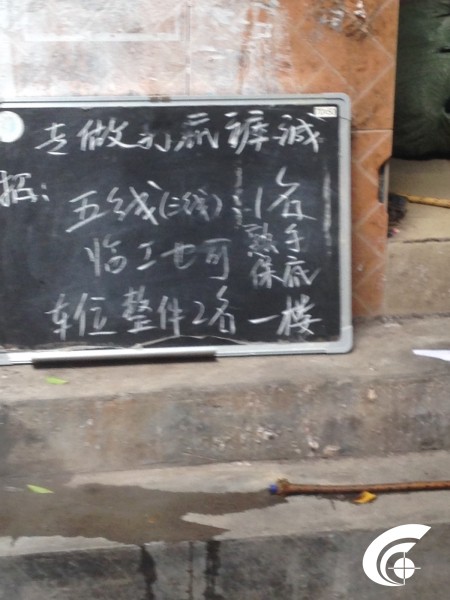 专做打瓜裤诚
招:
五线(三线)……1名
临工也可 熟手保底
车位整件2名 一楼